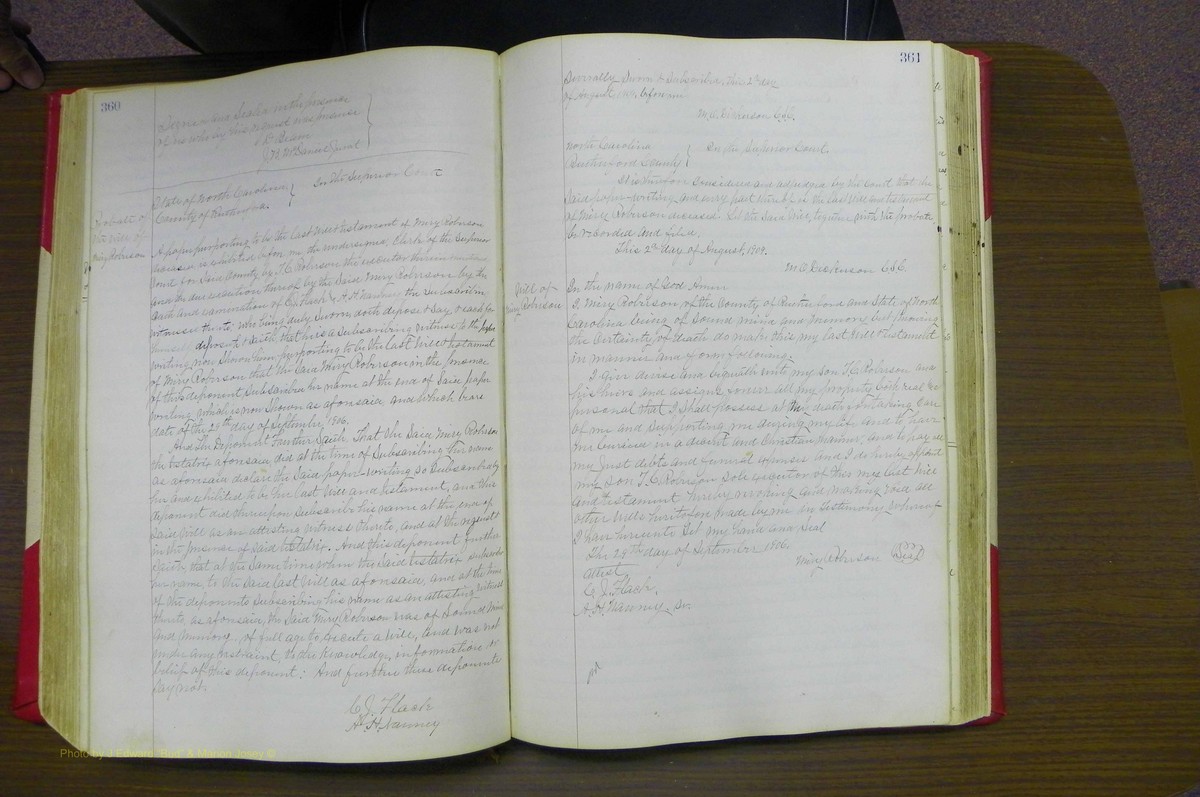 360
Signed and Sealed in the presence
of us who by his request was presence
D. Beam
J. H. McDaniel Jurat
State of North Carolina
County of Rutherford
In the Superior Court
Probate of
the will of
Miry Robinson
A paper purporting to be the last will & testament of Miry Robinson
deceased is exhibited before me, the undersigned, Clerk of the Superior
Court for said County by T. C. Robinson the executor therein mentioned
and the due execution thereof by the said Miry Robinson by the
oath and examination of C. J. Flack & A. H. Nanney the subscribing
witnesses thereto: who being duly sworn, doth depose & say, & each for
himself deposeth & saith, that he is a subscribing witness to the paper
writing now shown him, purporting to be the last will & testament
of Miry Robinson that the said Miry Robinson in the presence
of this deponent, subscribed her name at the end of said paper
writing which is now shown as aforesaid and which bears
date of the 29th day of September, 1906.
And the Deponent Further Saith, That the said Miry Robinson
the testatrix aforesaid did at the time of subscribing her name
as aforesaid declare the said paper-writing so subscribed by
her and exhibited to be her last will and testament, and this
deponent did thereupon subscribe his name at the end of
said will as an attesting witness thereto, and at the request &
in the presence of said testatrix. And this deponent further
saith, that at the same time when the said testatrix subscribed
her name, to the said last will as aforesaid, and at the time
of the deponents subscribing his name as an attesting witness
thereto, as aforesaid, the said Miry Robinson was of sound mind
and memory, of full age to execute a will, and was not
under any restraint, to the knowledge, information or
belief of this deponent: And further these deponents
say not.
C. J. Flack
A. H. Nanney
361
Severally Sworn & Subscribed, this 2nd day
of August 1909, before me
M. O. Dickerson C.S.C.
North Carolina
Rutherford County
In the Superior Court
It is therefore considered and adjudged by the court that the
said paper-writing and every part thereof is the last will and testament
of Miry Robinson deceased. Let the said will, together with the probate
be recorded and filed.
This 2nd day of August, 1909.
M. O. Dickerson C.S.C.
Will of
Miry Robinson
In the name of God Amen
I, Miry Robinson of the County of Rutherford and State of North
Carolina being of sound mind and memory but knowing
the certainty of death do make this my last will & testament
in manner and form following.
I give devise and bequeath unto my son T. C. Robinson and
his heirs and assigns forever all my property both real &
personal that I shall possess at my death for taking care
of me and supporting me during my life, and to have
me buried in a decent and Christian manner, and to pay all
my just debts and funeral expenses and I do hereby appoint
my son T. C. Robinson sole executor of this my last will
and testament hereby revoking and making void all
other wills heretofore made by me in testimony whereof
I have hereunto set my hand and seal
The 29th day of September 1906.
Miry Robinson Seal
Attest
C. J. Flack.
A. H. Nanney, Sr.
Photo by J Edward "Bud" & Marion Josey ©